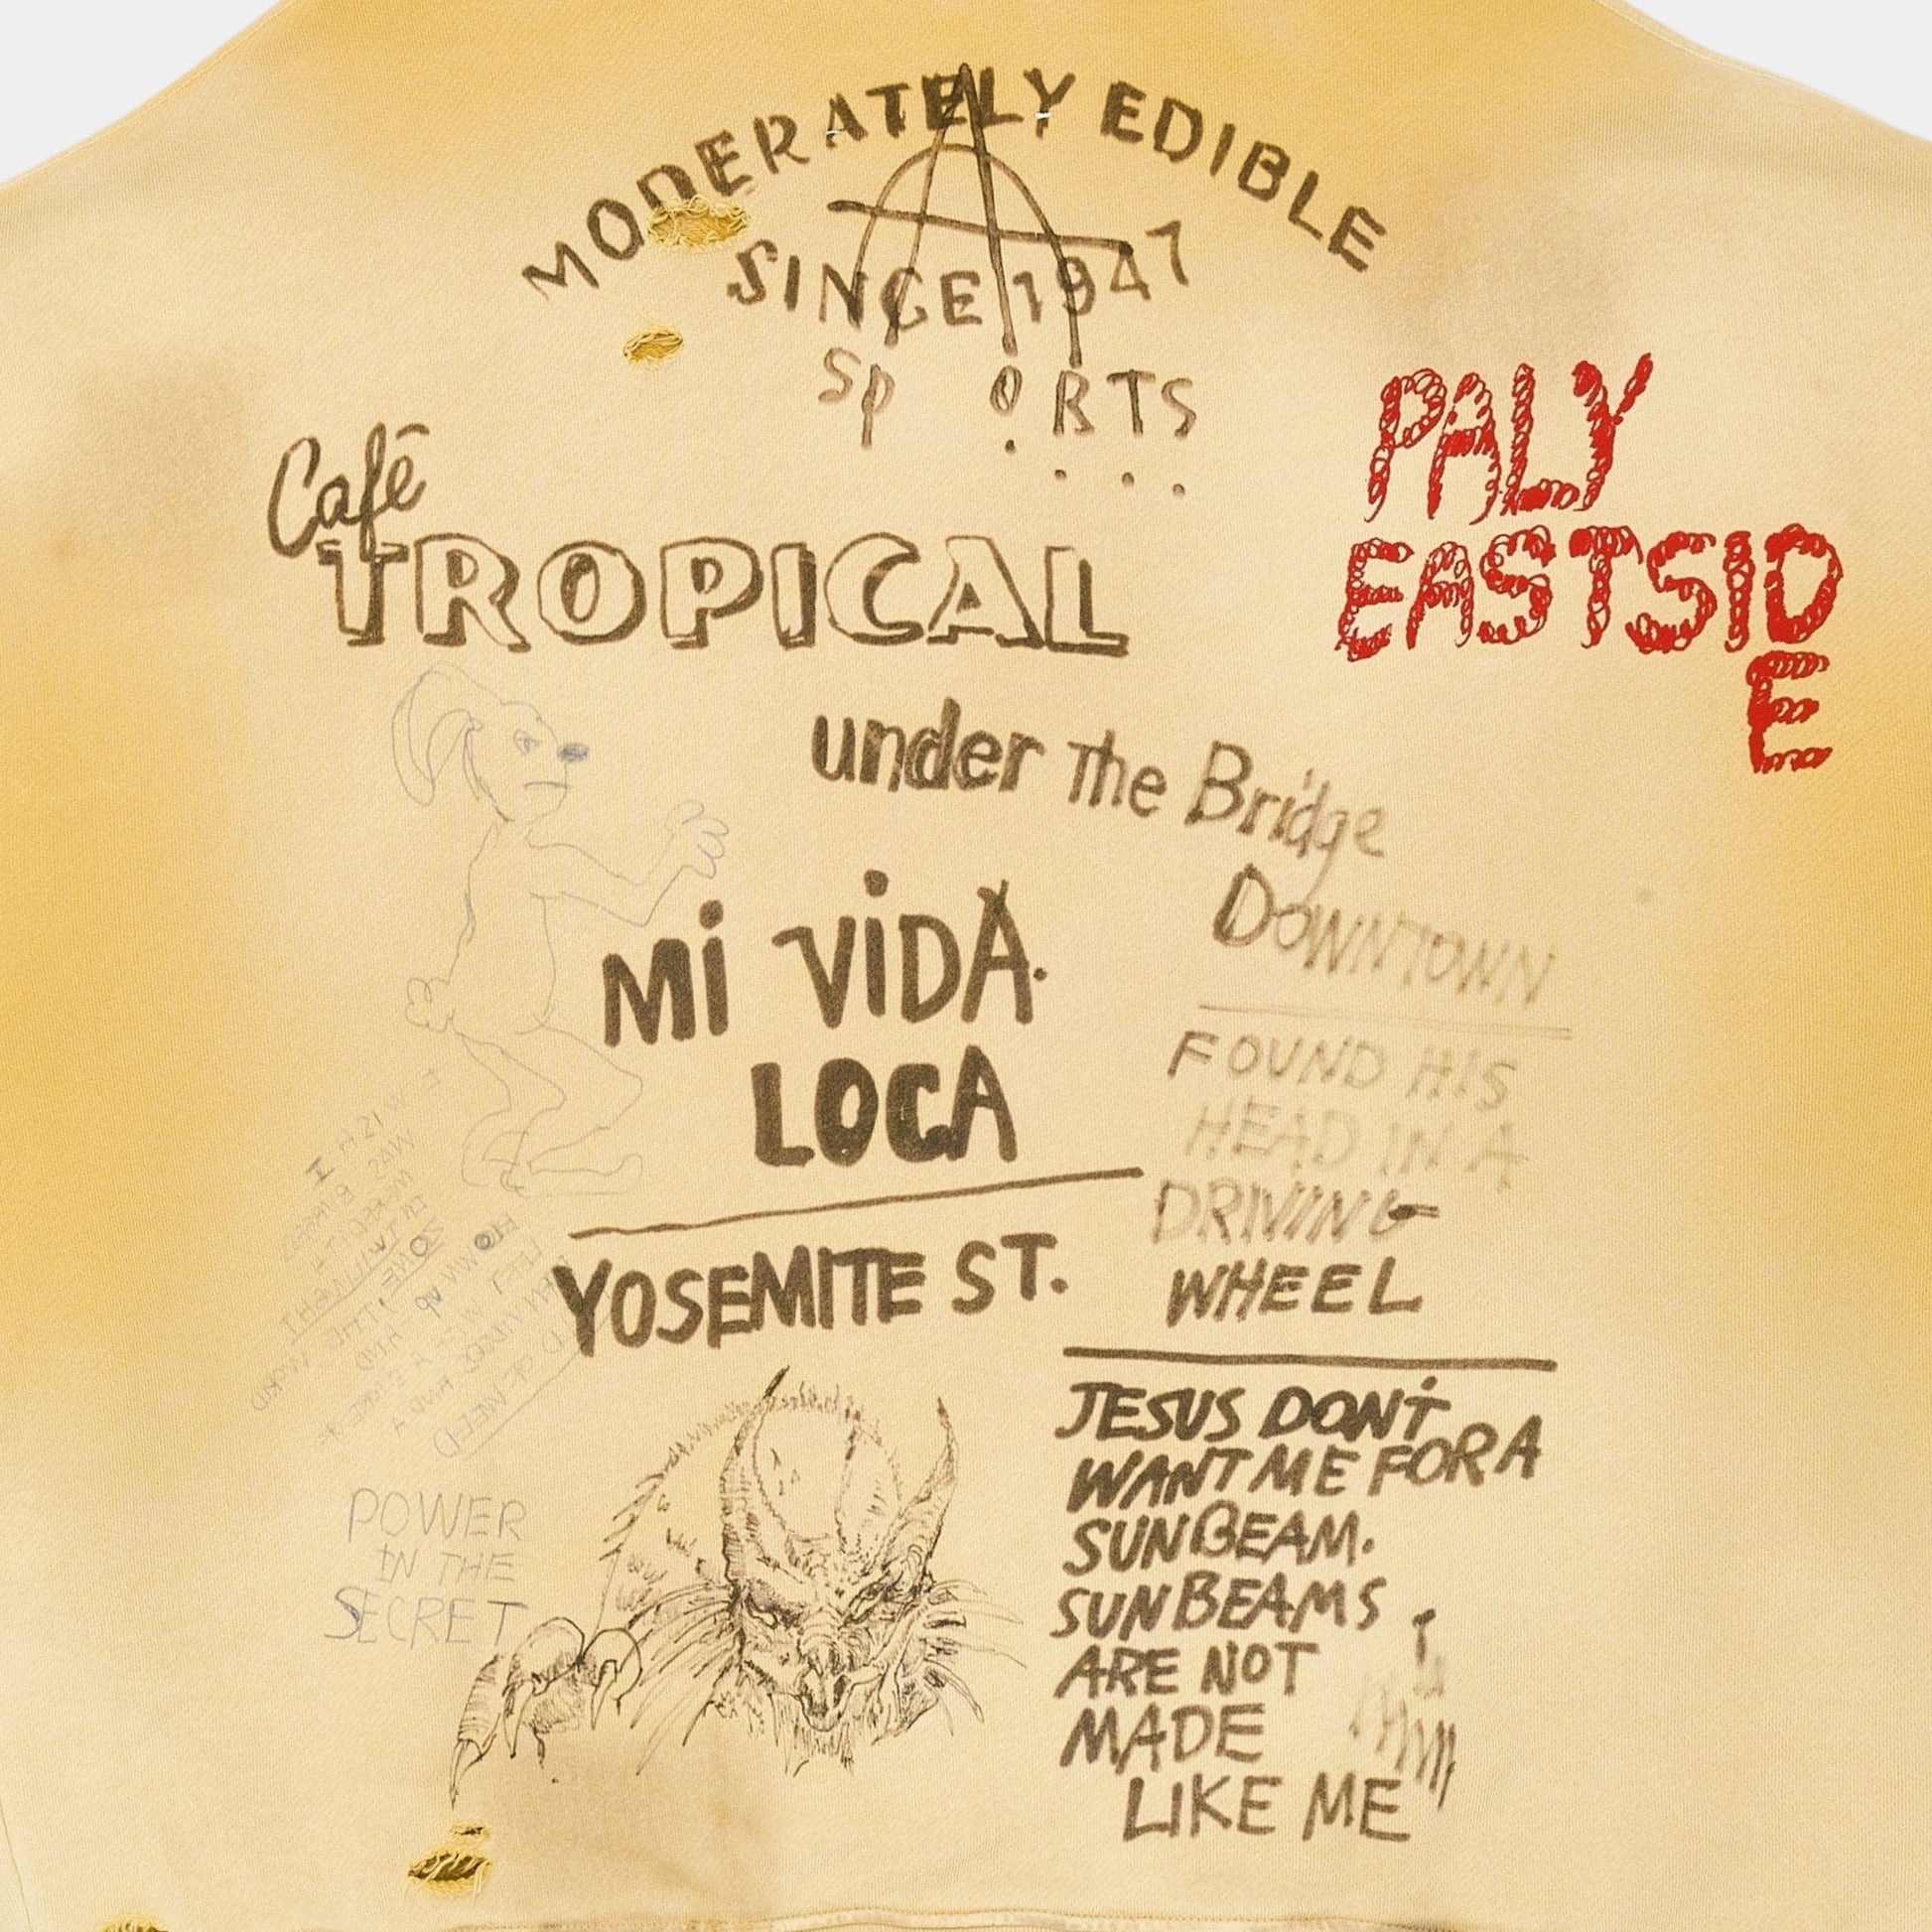 MODERATELY EDIBLE
SINCE 1947
Sp ORTS
PALY
EASTSID
E
Café
TROPICAL
under The Bridge
DOWNTOWN
Mi ViDA.
LOCA
FOUND HIS
HEAD IN A
DRIVING
WHEEL
YOSEMITE ST.
JESUS DONT
WANT ME FOR A
SUNBEAM.
SUNBEAMS
ARE NOT
MADE
LIKE ME
POWER
IN THE
SECRET